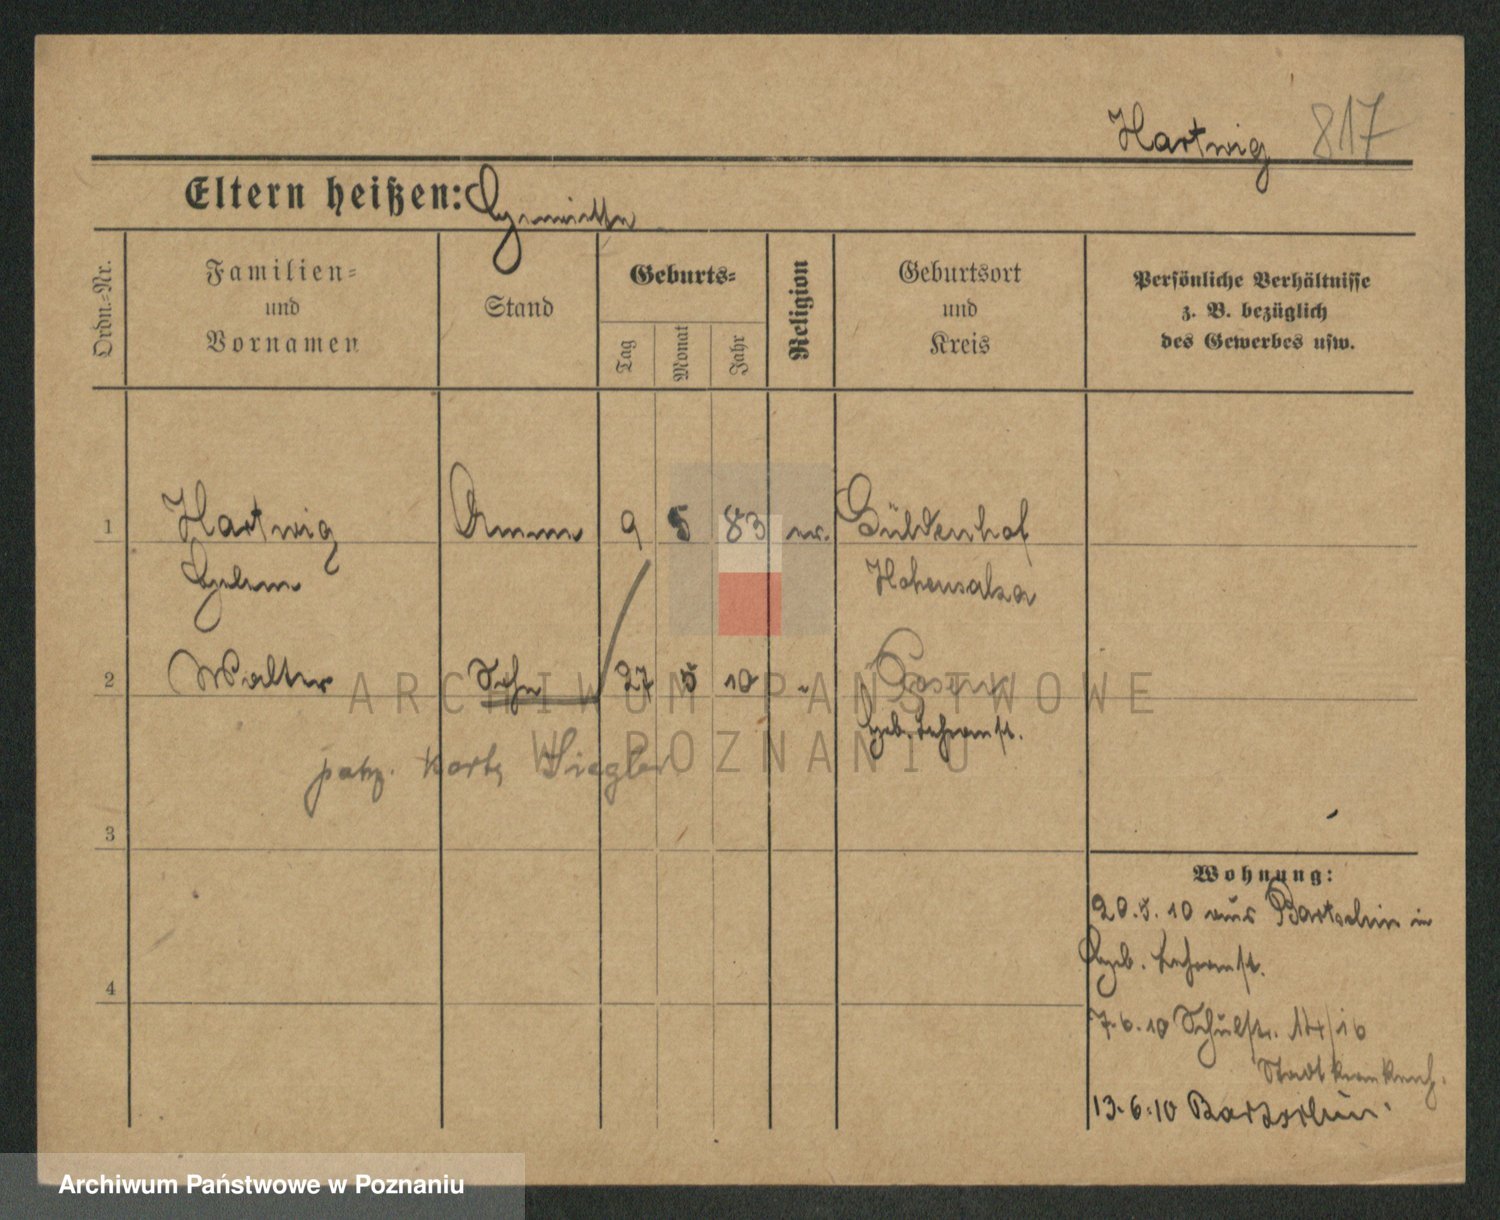 Hartwig 817
Eltern heißen:
Ordn.=Nr.
Familien=
und
Vornamen
Stand
Geburts=
Tag
Monat
Jahr
Religion
Geburtsort
und
Kreis
Persönliche Verhältnisse
z. B. bezüglich
des Gewerbes usw.
1 Hartwig Amme 9 5 83 ev. Güldenhof
Hohensalza
2 Walter Sohn 27 5 10 " Posen
Geb. Lehranst.
patrz. kartę Siegler
3
4
Wohnung:
20.5.10 aus Bartschin in
Geb. Lehranst.
7.6.10 Schulstr. 14/16
Stadtkrankenh.
13.6.10 Bartschin
ARCHIWUM PAŃSTWOWE
W POZNANIU
Archiwum Państwowe w Poznaniu